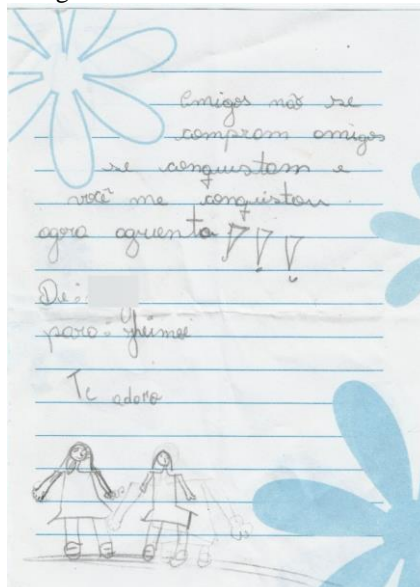 Emigos não se
comprom omigos
se conquistam e
você me conquistou
agora aguenta !!!
De:
para: Yheimee
Te adoro